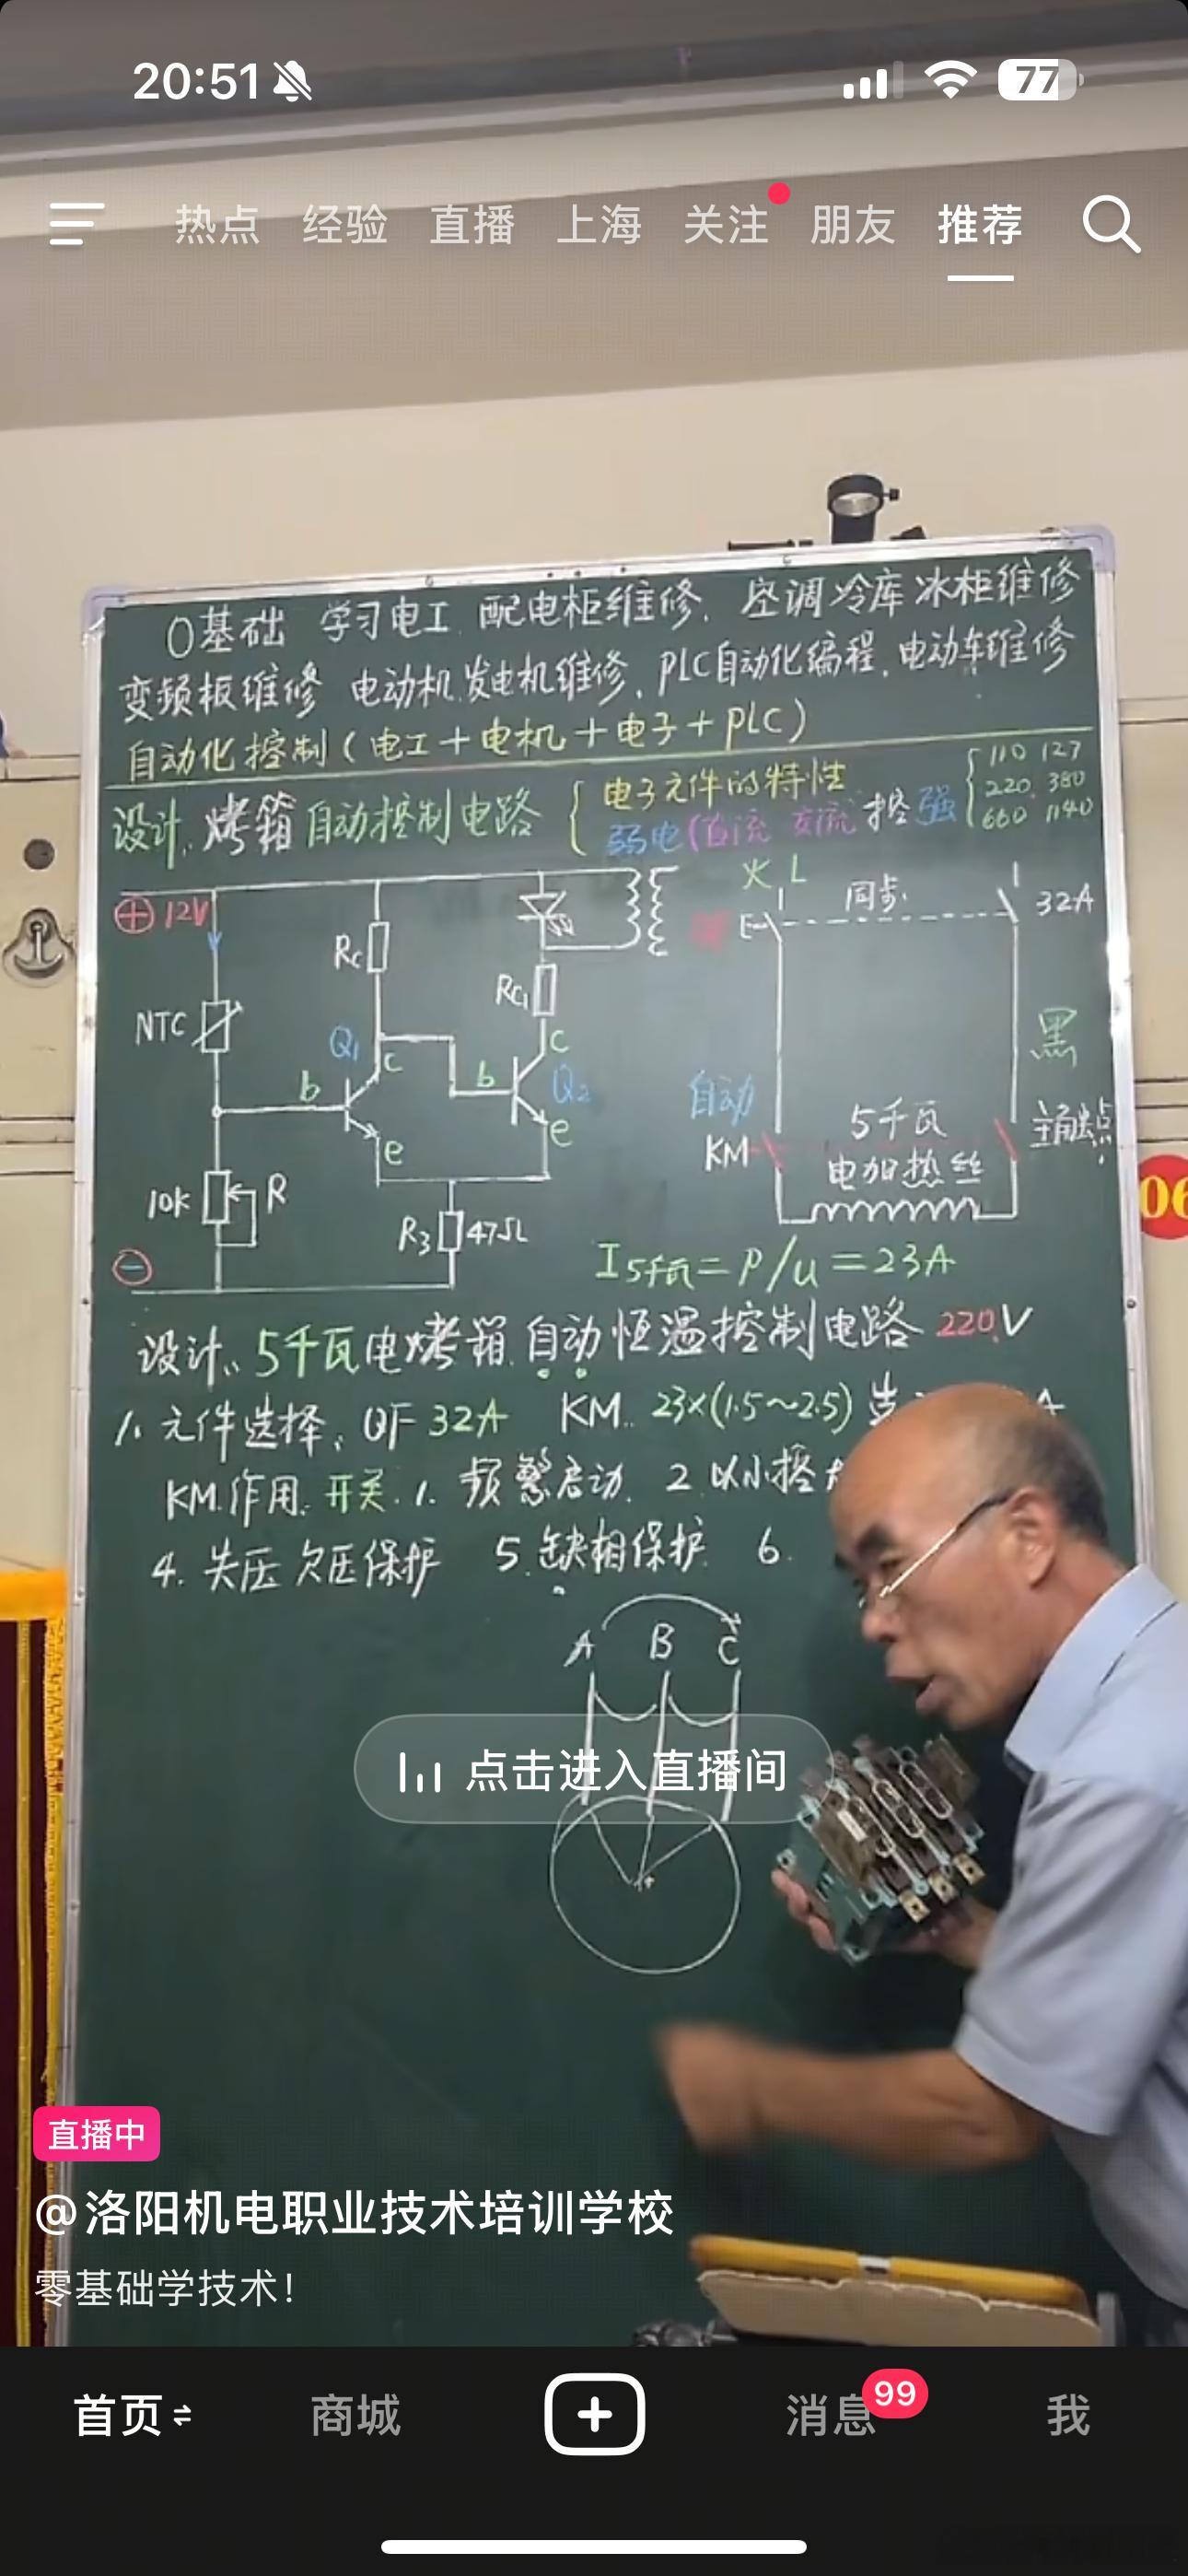 20:51
77
热点 经验 直播 上海 关注 朋友 推荐
0基础 学习电工 配电柜维修. 空调冷库冰柜维修
变频板维修 电动机.发电机维修, PLC自动化编程, 电动车维修
自动化控制(电工+电机+电子+PLC)
设计. 烤箱自动控制电路
电子元件的特性
弱电(直流 交流)控强
110 127
220 380
660 1140
⊕ 12V
Rc
Rc1
火 L
同步
32A
NTC
Q1
c
b
e
c
b
Q2
e
黑
自动
KM
5千瓦
电加热丝
主触点
10K
R
R3
47Ω
⊖
06
I5千瓦=P/u=23A
设计.. 5千瓦电烤箱.自动恒温控制电路 220V
1. 元件选择、QF 32A KM.. 23×(1.5~2.5)
KM.作用. 开关. 1. 频繁启动. 2. 以小控
4. 失压 欠压保护 5. 缺相保护 6.
A B C
点击进入直播间
直播中
@洛阳机电职业技术培训学校
零基础学技术!
首页 商城 消息 99 我